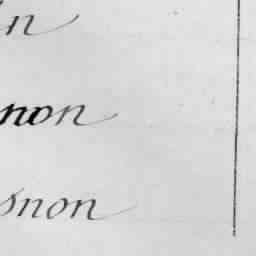 n
non
snon